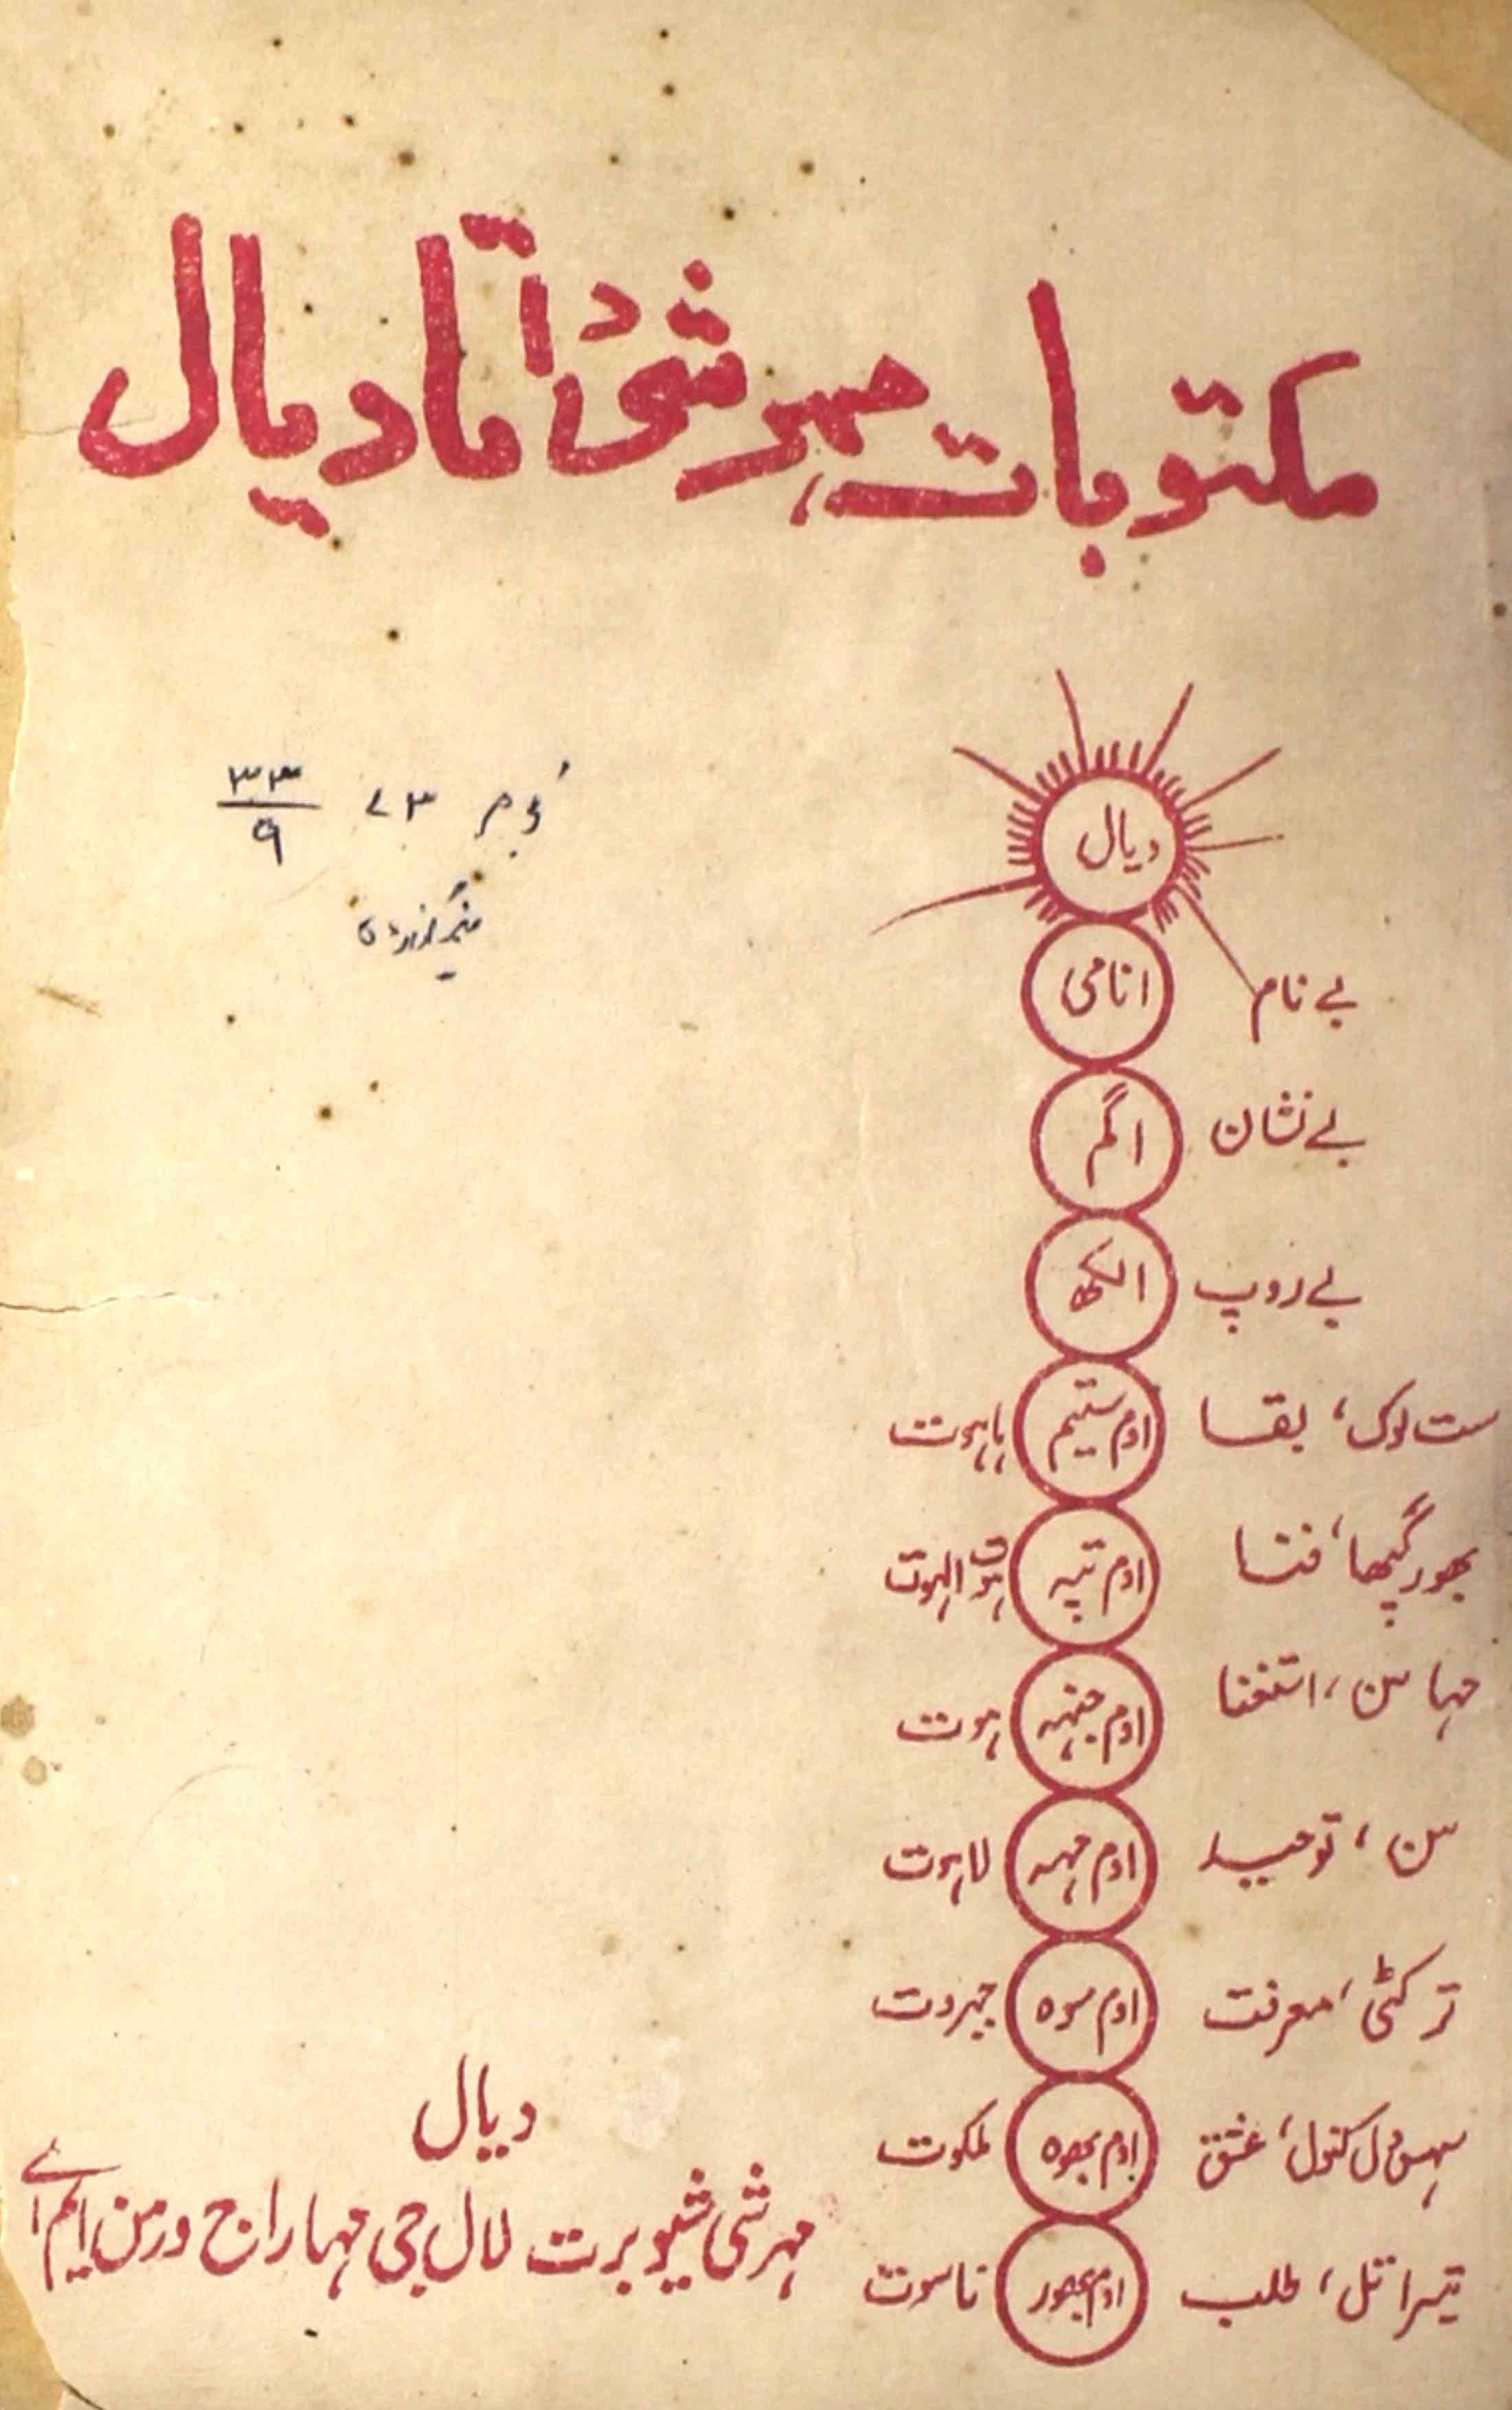 مکتوبات مہرشی داتا دیال
۷۳ ۳۳/۹
دیال
انامی بے نام
اگم بے نشان
الکھ بے روپ
ست لوک، بقا اوم ستیم ہاہوت
بھور گپھا، فنا اوم تپہ ہوت الہوت
مہا سن، استغنا اوم جنہہ ہوت
سن، توحید اوم مہہ لاہوت
ترکٹی، معرفت اوم سوہ جبروت
سہس دل کنول، عشق اوم بھوہ ملکوت
تیسرا تل، طلب اوم بھور ناسوت
دیال
مہرشی شیو برت لال جی مہاراج ورمن ایم اے